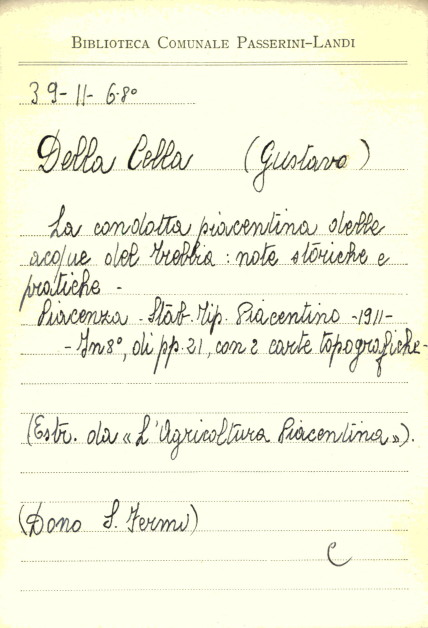 BIBLIOTECA COMUNALE PASSERINI-LANDI
39-11-6·8º
Della Cella (Gustavo)
La condotta piacentina delle
acque del Trebbia : note storiche e
pratiche -
Piacenza - Stab. Tip. Piacentino - 1911-
- In 8º, di pp. 21, con 2 carte topografiche-
(Estr. da « L'Agricoltura Piacentina »).
(Dono S. Fermi)
C